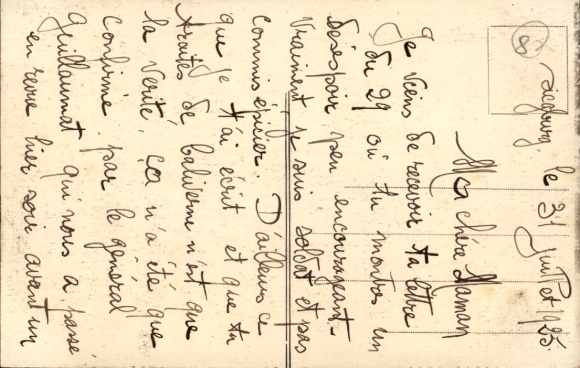 Siegburg, le 31 Juillet 1925.
Ma chère Maman
Je viens de recevoir ta lettre
du 29 où tu montres un
désespoir peu encourageant.
Vraiment je suis soldat et pas
commis épicier. D'ailleurs ce
que je t'ai écrit et que tu
traites de baliverne n'est que
la vérité, ça n'a été que
confirmé par le général
Guillaumat qui nous a passé
en revue hier soir avant un